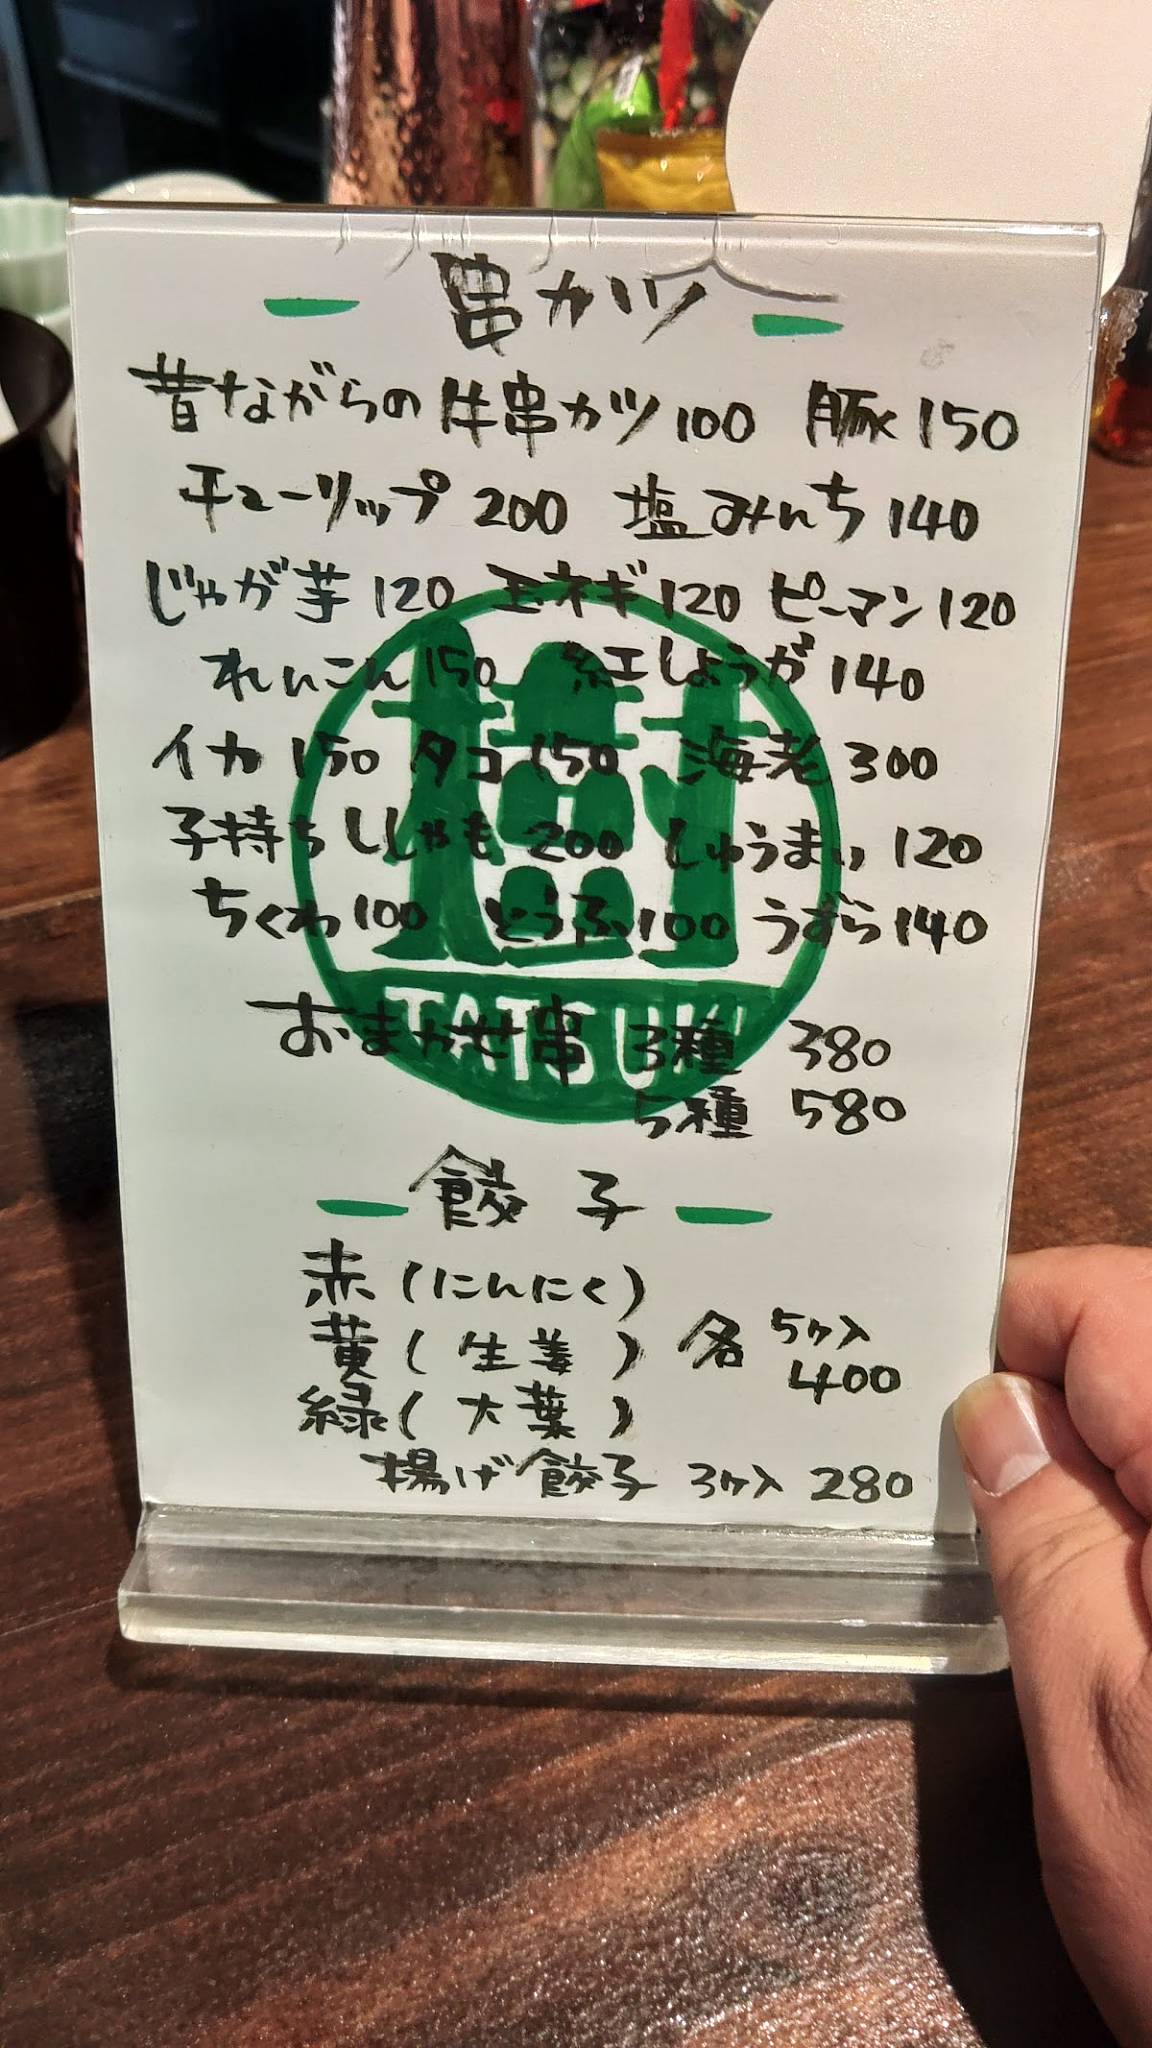 串カツ
昔ながらの牛串カツ100 豚150
チューリップ200 塩みんち140
じゃが芋120 玉ネギ120 ピーマン120
れんこん150 紅しょうが140
イカ150 タコ150 海老300
子持ちししゃも200 しゅうまい120
ちくわ100 とうふ100 うずら140
おまかせ串 3種 380
5種 580
TATSUKI
餃子
赤(にんにく)
黄(生姜) 各 5ヶ入 400
緑(大葉)
揚げ餃子 3ヶ入 280